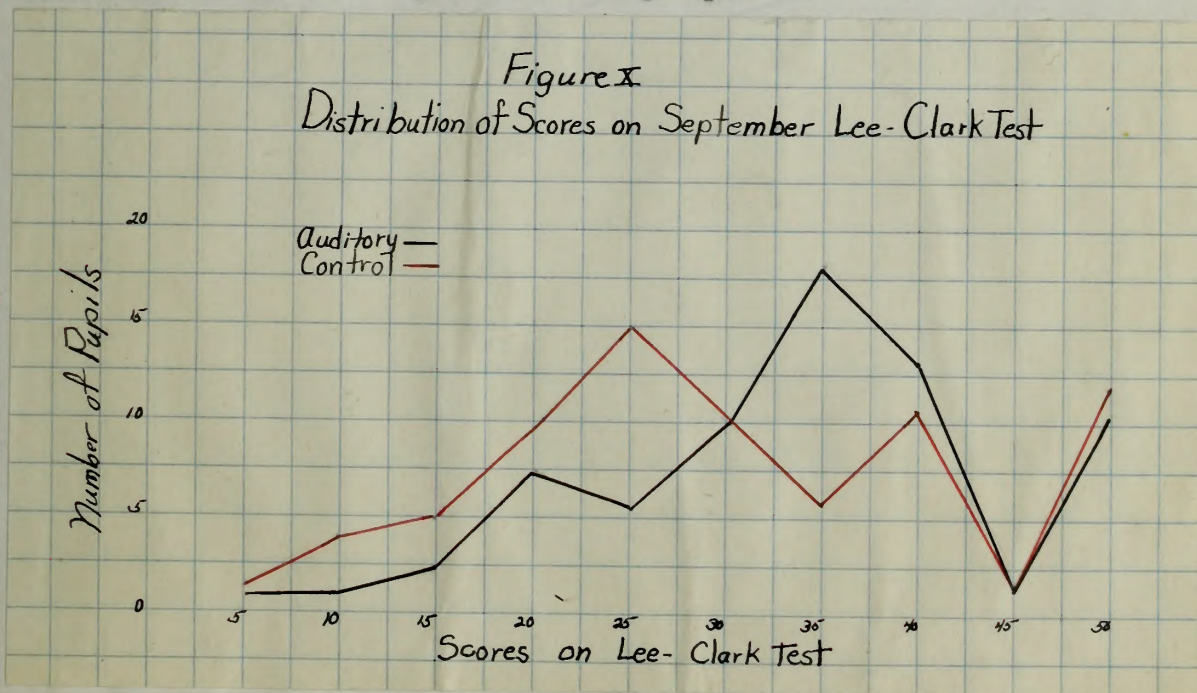 Figure X
Distribution of Scores on September Lee-Clark Test
20
Auditory
Control
15
Number of Pupils
10
5
0
5 10 15 20 25 30 35 40 45 50
Scores on Lee-Clark Test